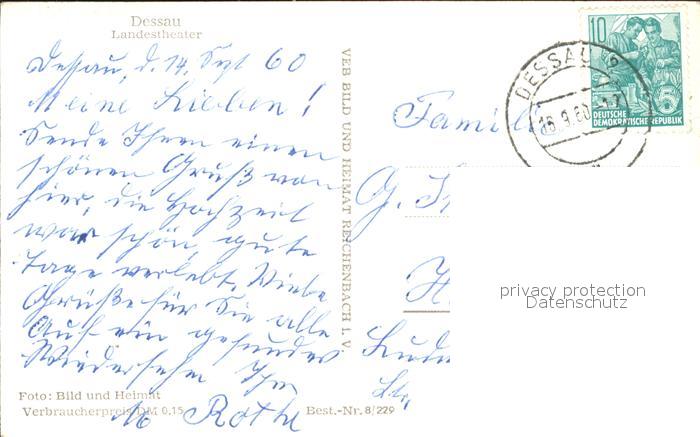 Dessau
Landestheater
Dessau, d. 14. Sept 60
Meine Lieben!
Sende Ihnen einen
schönen Gruß von
hier, die Hochzeit
war schön, gute
Tage verlebt. Viele
Grüße für Sie alle
Auf ein gesundes
Wiedersehn Ihr
M. Rothe
Foto: Bild und Heimat
Verbraucherpreis DM 0,15
Best.-Nr. 8/229
VEB BILD UND HEIMAT REICHENBACH I. V.
Famil
G.
H
Str.
10
5
DEUTSCHE
DEMOKRATISCHE REPUBLIK
DESSAU
16.9.60
privacy protection
Datenschutz